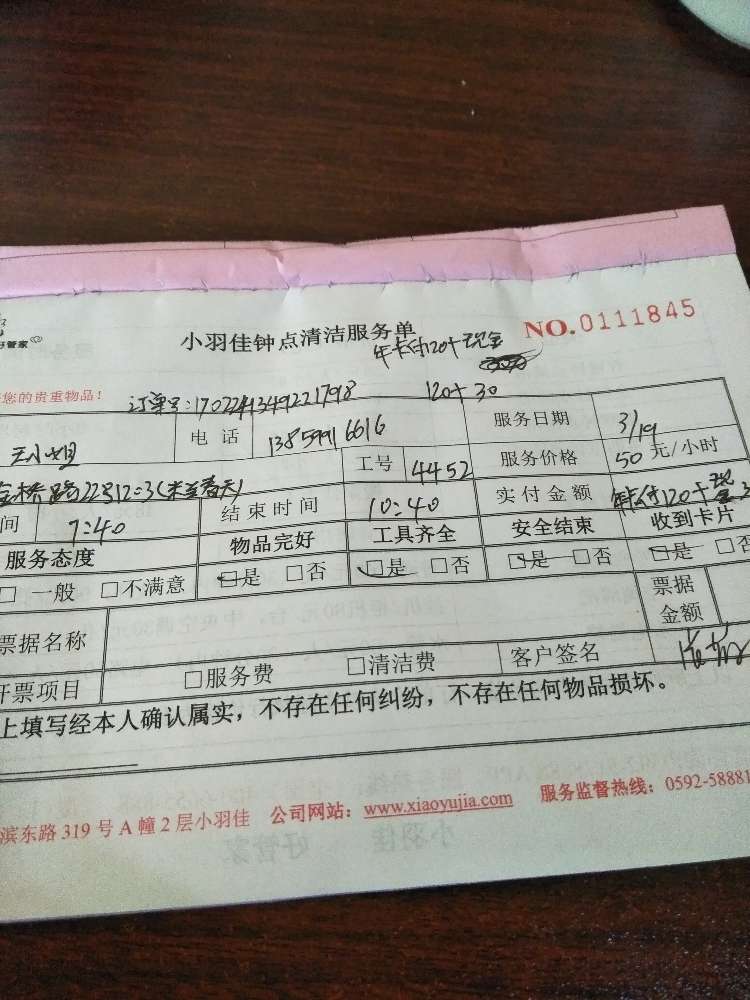 好管家
小羽佳钟点清洁服务单
NO.0111845
年卡付120+现金
您的贵重物品!
订单号:1702241349221798
120+30
王小姐
电 话
服务日期
3/19
工号
4452
服务价格
50 元/小时
金桥路22号1203
间
7:40
结束时间
10:40
实付金额
年卡付120+现金3
服务态度
物品完好
工具齐全
安全结束
收到卡片
□ 一般 □不满意
□是 □否
□是 □否
□是 □否
□是 □否
票据名称
票据
金额
开票项目
□服务费
□清洁费
客户签名
上填写经本人确认属实,不存在任何纠纷,不存在任何物品损坏。
滨东路 319 号 A 幢 2 层小羽佳 公司网站:www.xiaoyujia.com 服务监督热线:0592-58881